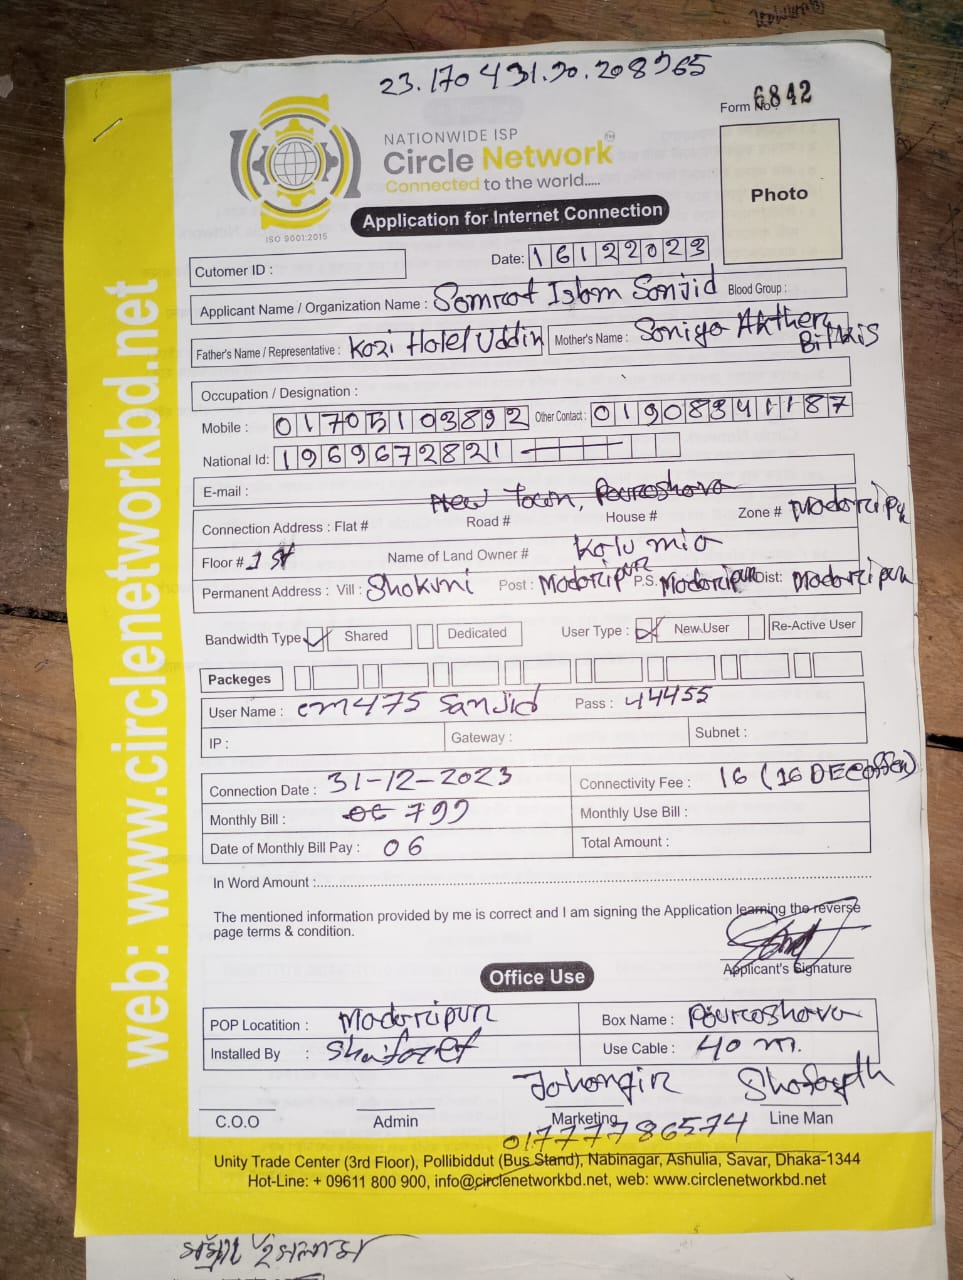 23.170 431.90.208965
Form No: 6842
NATIONWIDE ISP
Circle Network
Connected to the world.....
ISO 9001:2015
Photo
Application for Internet Connection
Date: 16122023
Cutomer ID :
Applicant Name / Organization Name : Somrat Islam Sonjid Blood Group :
Father's Name / Representative : Kazi Halel Uddin Mother's Name : Soniya Akther
Bilkis
Occupation / Designation :
Mobile : 01705103892 Other Contact : 01908341187
National Id: 1969672821
E-mail :
New Town, Pouroshova
Connection Address : Flat # Road # House # Zone # Madaripur
Floor # 1st Name of Land Owner # Kalu mia
Permanent Address : Vill : Shokuni Post : Madaripur P.S. Madaripur Dist: Madaripur
Bandwidth Type Shared Dedicated User Type : New User Re-Active User
Packeges
User Name : cm475 Sanjid Pass : 44455
IP : Gateway : Subnet :
Connection Date : 31-12-2023 Connectivity Fee : 16 (16 DEC offer)
Monthly Bill : 799 Monthly Use Bill :
Date of Monthly Bill Pay : 06 Total Amount :
In Word Amount :
The mentioned information provided by me is correct and I am signing the Application learning the reverse
page terms & condition.
Applicant's Signature
Office Use
POP Locatition : Madaripur Box Name : Pouroshova
Installed By : Use Cable : 40 m.
Jahangir
C.O.O Admin Marketing Line Man
01777786574
Unity Trade Center (3rd Floor), Pollibiddut (Bus Stand), Nabinagar, Ashulia, Savar, Dhaka-1344
Hot-Line: + 09611 800 900, info@circlenetworkbd.net, web: www.circlenetworkbd.net
web: www.circlenetworkbd.net